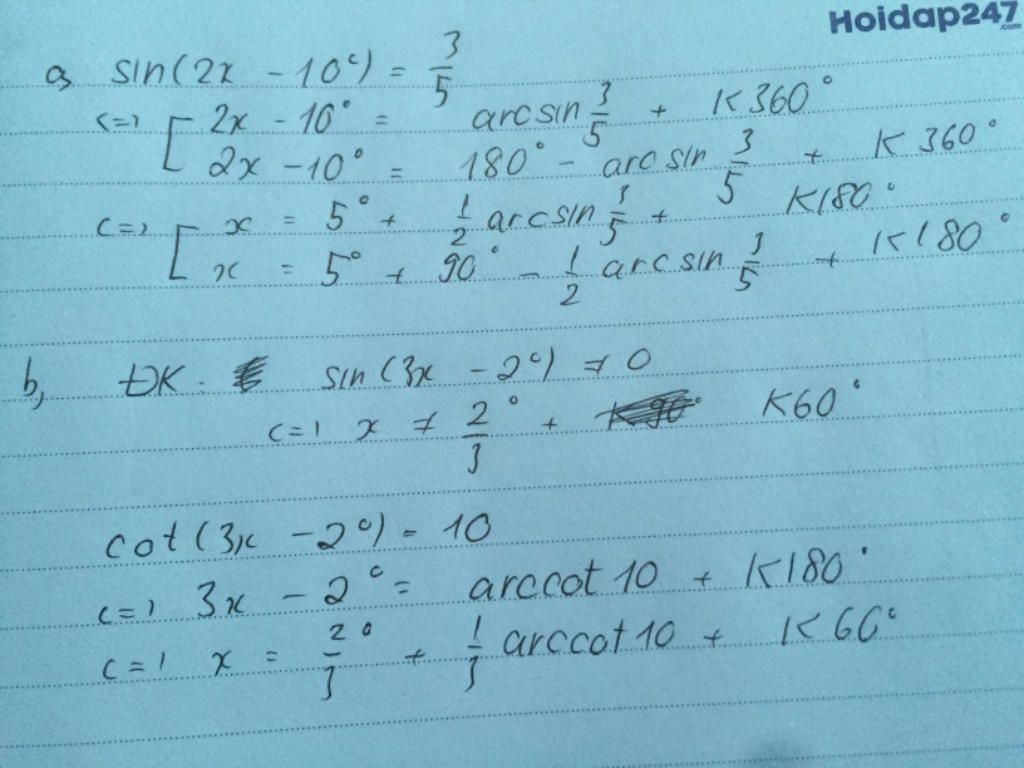 Hoidap247.com
a, sin(2x - 10°) = 3/5
<=> [ 2x - 10° = arcsin 3/5 + K360°
2x - 10° = 180° - arcsin 3/5 + K360°
<=> [ x = 5° + 1/2 arcsin 3/5 + K180°
x = 5° + 90° - 1/2 arcsin 3/5 + K180°
b, ĐK: sin(3x - 2°) ≠ 0
<=> x ≠ 2°/3 + K60°
cot(3x - 2°) = 10
<=> 3x - 2° = arccot 10 + K180°
<=> x = 2°/3 + 1/3 arccot 10 + K60°